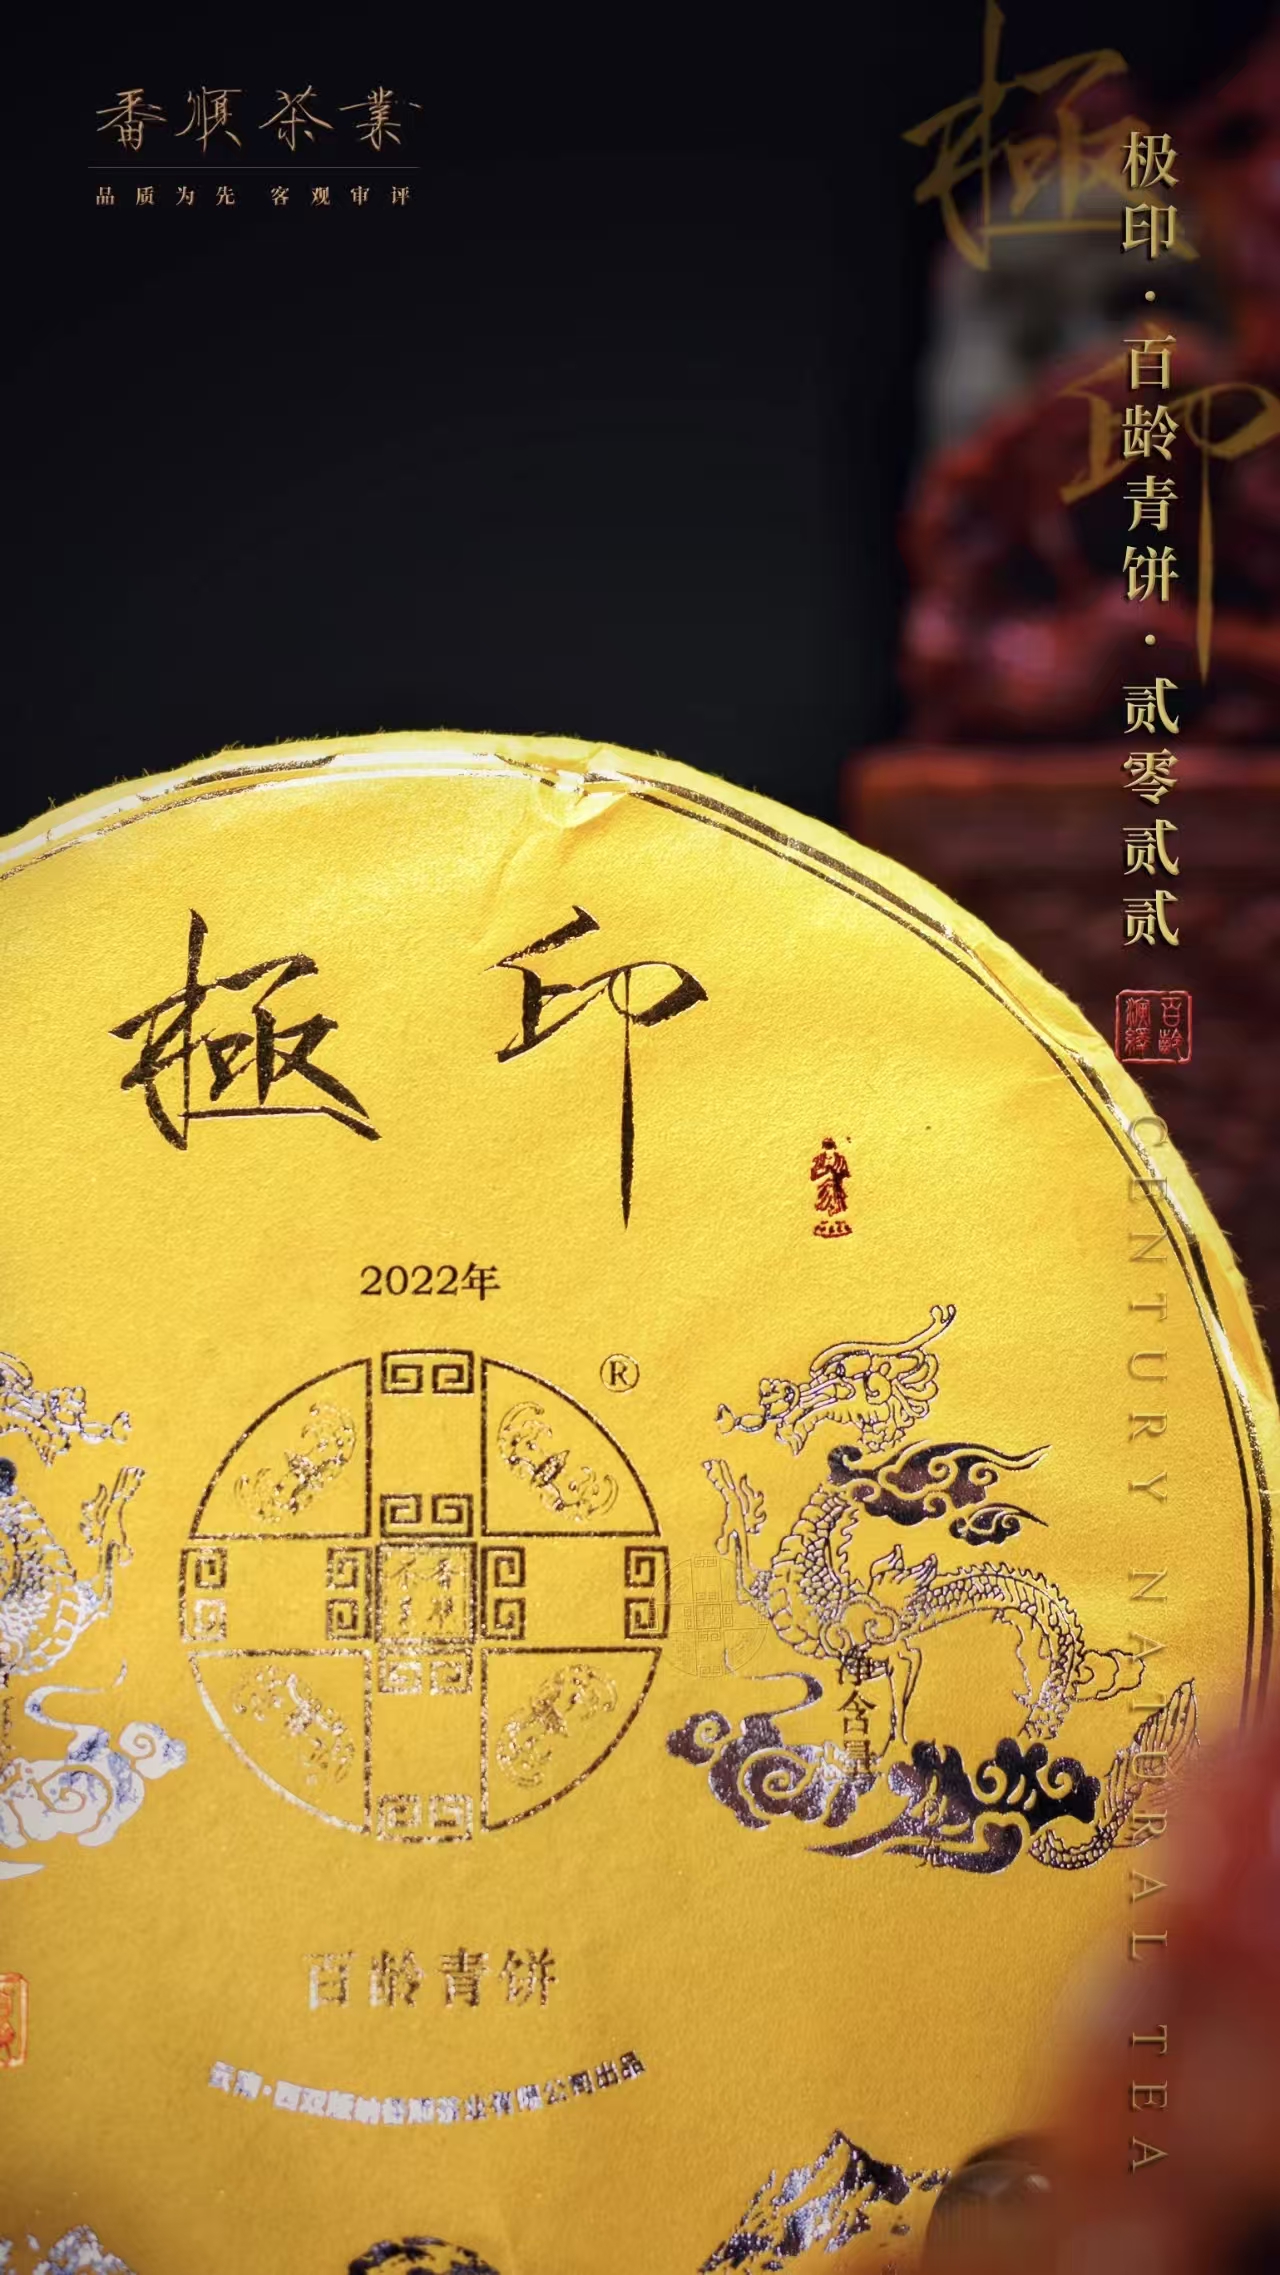 番順茶業
品质为先 客观审评
極印
极印·百龄青饼·贰零贰贰
百龄
演绎
CENTURY NATURAL TEA
極印
2022年
®
净含量
百龄青饼
云南·西双版纳番顺茶业有限公司出品